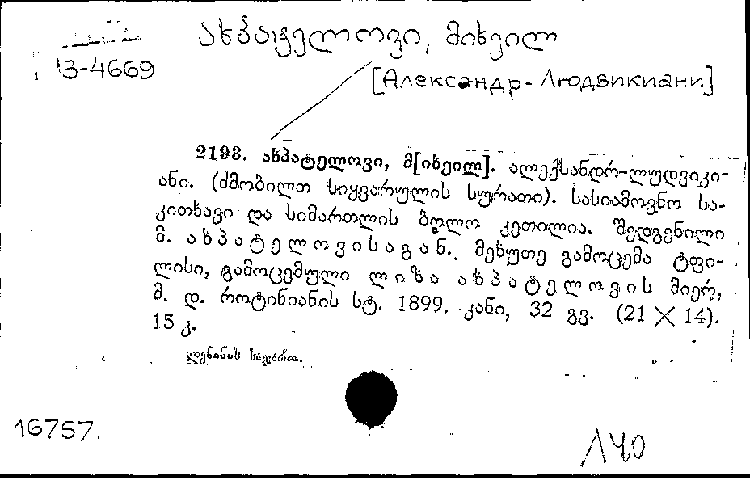 ახპატელოვი, მიხეილ
13-4669
[Александр-Людвикиани]
2193. ახპატელოვი, მ[იხეილ]. ალექსანდრ-ლუდვიკი-
ანი. (ძმობილთ სიყვარულის სურათი). სასიამოვნო სა-
კითხავი და სიმართლის ბოლო კეთილია. შედგენილი
მ. ახპატელოვისაგან. მეხუთე გამოცემა ტფი-
ლისი, გამოცემული ლიზა ახპატელოვის მიერ,
მ. დ. როტინიანის სტ. 1899. კანი, 32 გვ. (21 × 14).
15 კ.
16757.